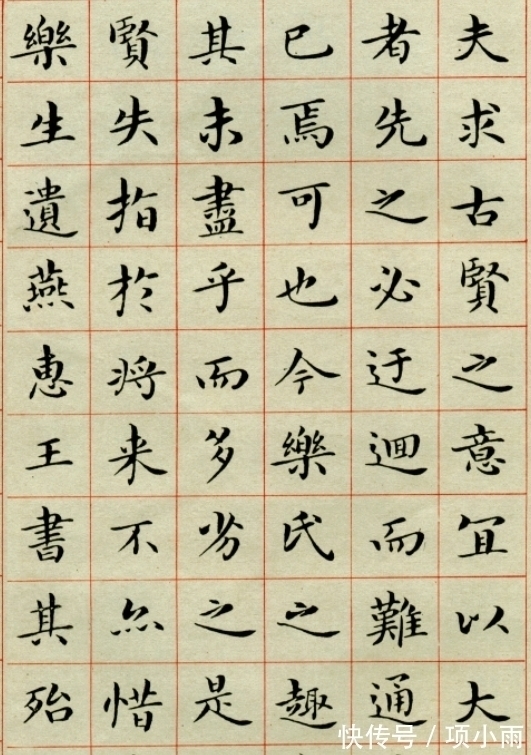 夫求古賢之意冝以大
者先之必迂迴而難通
已焉可也今樂氏之趣
其未盡乎而多劣之是
賢失指於将来不亦惜
樂生遺燕惠王書其殆
快传号 / 项小雨